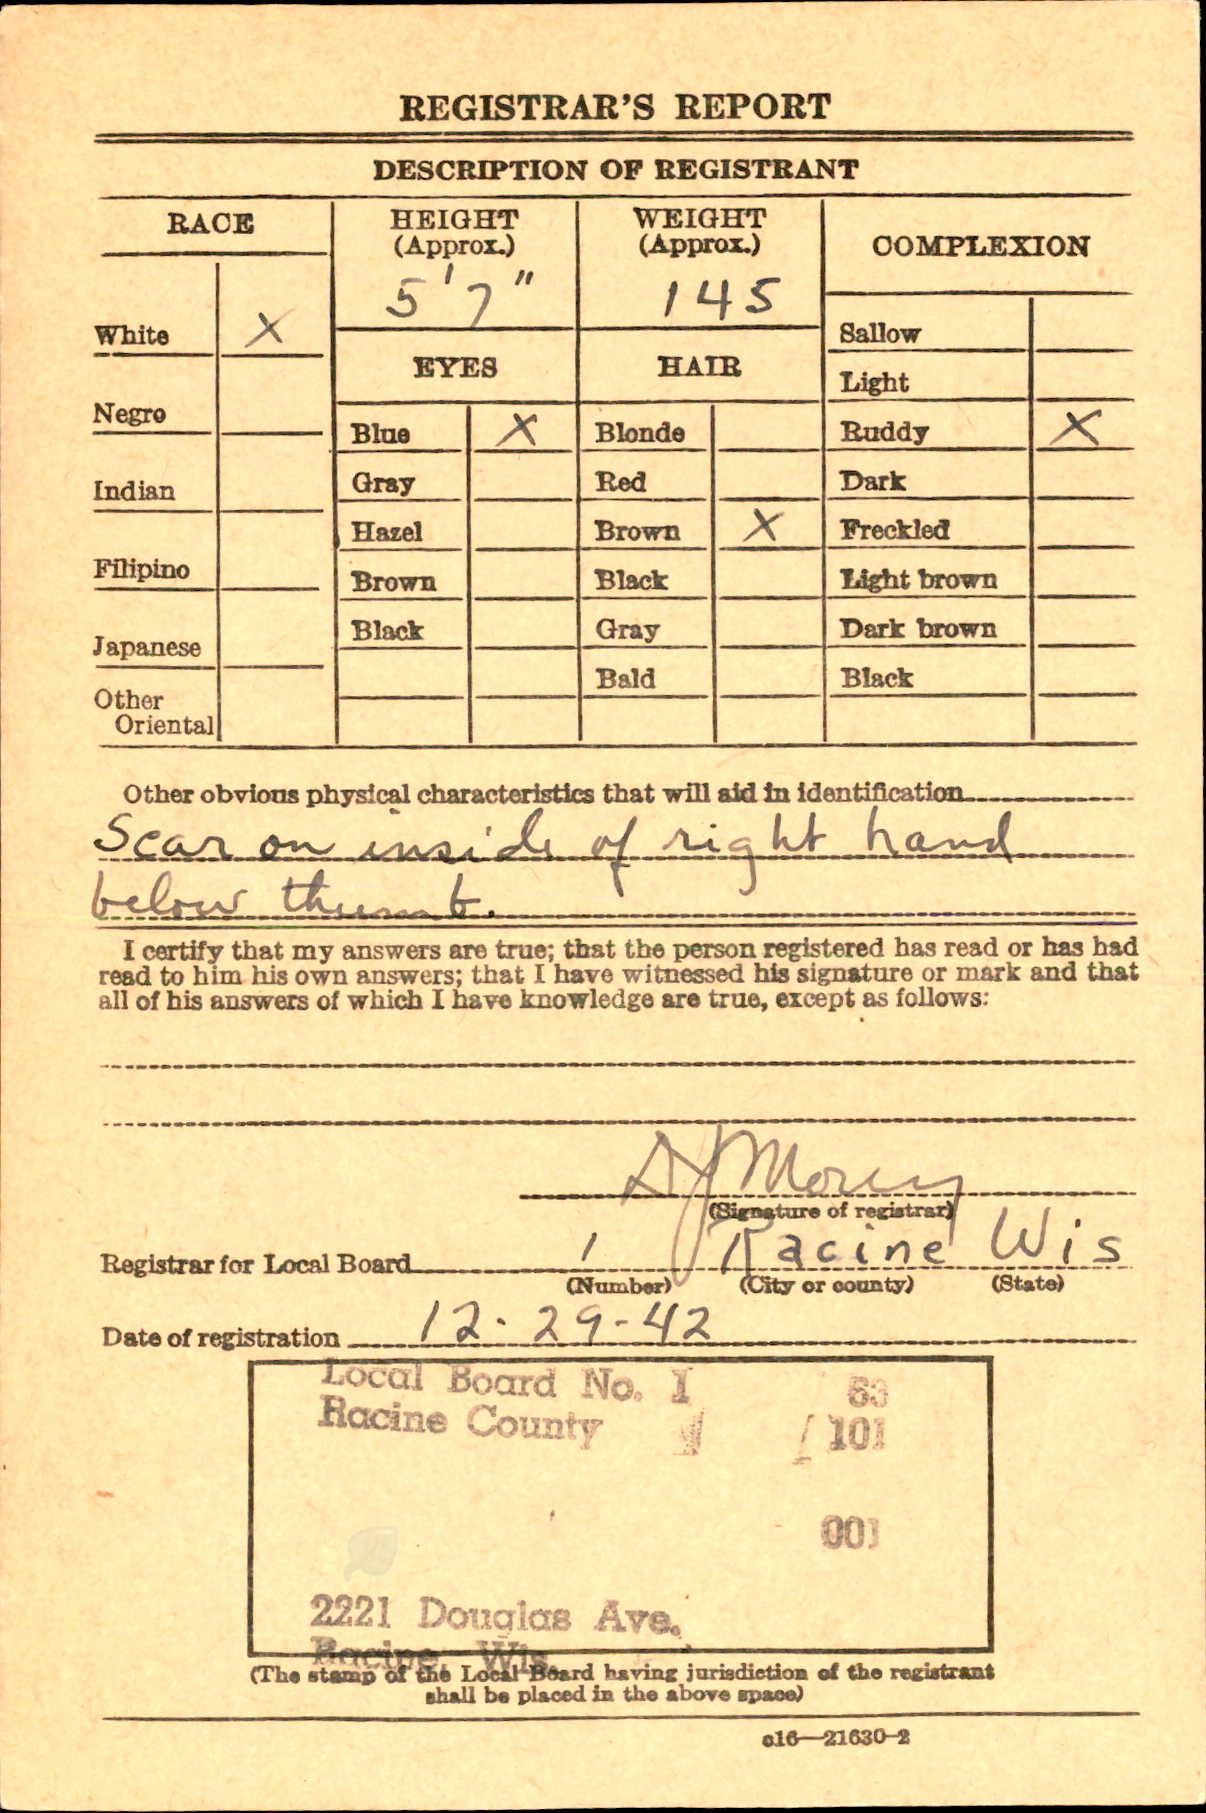 REGISTRAR'S REPORT
DESCRIPTION OF REGISTRANT
RACE
HEIGHT
(Approx.)
5'7"
WEIGHT
(Approx.)
145
COMPLEXION
White X
Negro
Indian
Filipino
Japanese
Other
Oriental
EYES
Blue X
Gray
Hazel
Brown
Black
HAIR
Blonde
Red
Brown X
Black
Gray
Bald
Sallow
Light
Ruddy X
Dark
Freckled
Light brown
Dark brown
Black
Other obvious physical characteristics that will aid in identification
Scar on inside of right hand
below thumb.
I certify that my answers are true; that the person registered has read or has had
read to him his own answers; that I have witnessed his signature or mark and that
all of his answers of which I have knowledge are true, except as follows:
(Signature of registrar)
Registrar for Local Board 1 Racine Wis
(Number) (City or county) (State)
Date of registration 12-29-42
Local Board No. 1 
Racine County 101
001
2221 Douglas Ave.
Racine, Wis.
(The stamp of the Local Board having jurisdiction of the registrant
shall be placed in the above space)
c16—21630-2